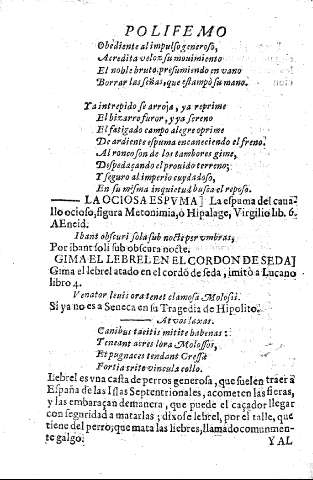 POLIFEMO
Obediente al impulso generoso,
Acredita veloz su mouimiento
El noble bruto, presumiendo en vano
Borrar las señas, que estampò su mano.
Ya intrepido se arroja, ya reprime
El bizarro furor, y ya sereno
El fatigado campo alegre oprime
De ardiente espuma encaneciendo el freno.
Al ronco son de los tambores gime,
Despedaçando el prouido terreno;
Y seguro al imperio cuydadoso,
En su misma inquietud busca el reposo.
LA OCIOSA ESPVMA] La espuma del caua-
llo ocioso, figura Metonimia, ò Hipalage, Virgilio lib. 6.
AEneid.
Ibant obscuri sola sub nocte per vmbras,
Por ibant soli sub obscura nocte.
GIMA EL LEBREL EN EL CORDON DE SEDA]
Gima el lebrel atado en el cordõ de seda, imitò a Lucano
libro 4.
Venator leuis ora tenet clamosa Molossi.
Si ya no es a Seneca en su Tragedia de Hipolito.
At vos laxas.
Canibus tacitis mitite habenas:
Teneant acres lora Molossos,
Et pugnaces tendant Cressæ
Fortia trito vincula collo.
Lebrel es vna casta de perros generosa, que suelen traer à
España de las Islas Septentrionales, acometen las fieras,
y las embaraçan demanera, que puede el caçador llegar
con seguridad a matarlas; dixose lebrel, por el talle, que
tiene del perro; que mata las liebres, llamado comunmen-
te galgo.
Y AL